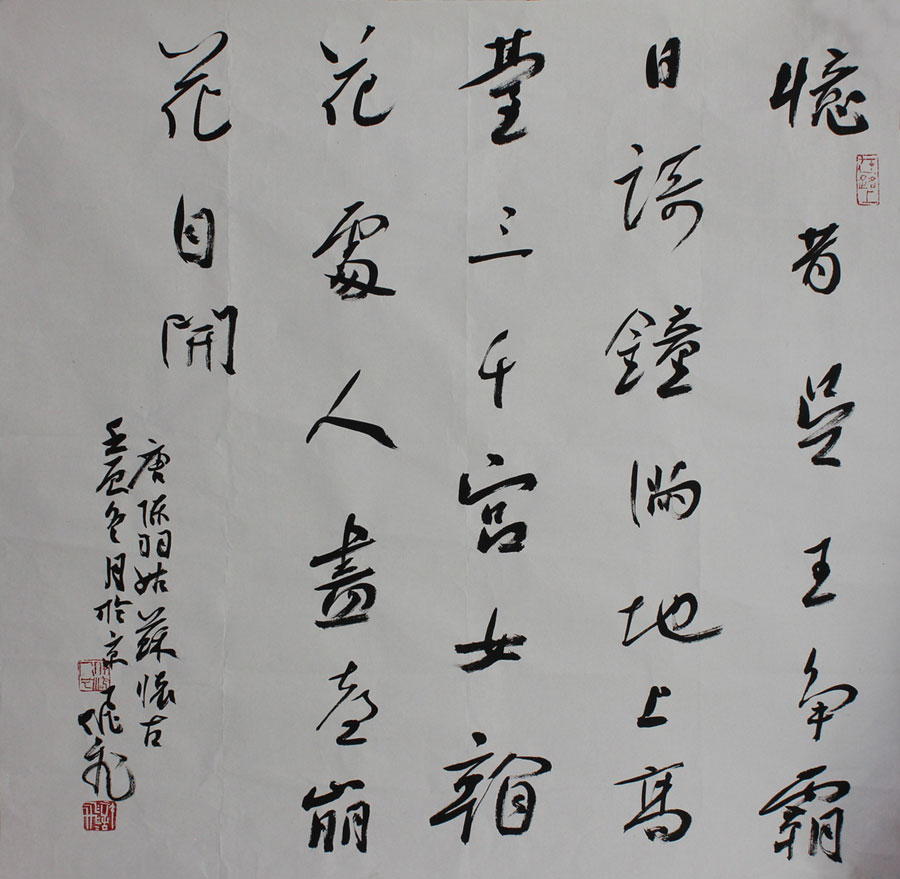 憶昔吳王争霸
日謌鐘滿地上高
臺三千宮女看
花處人盡臺崩
花自開
唐陈羽姑蘇懷古
壬辰冬月於京